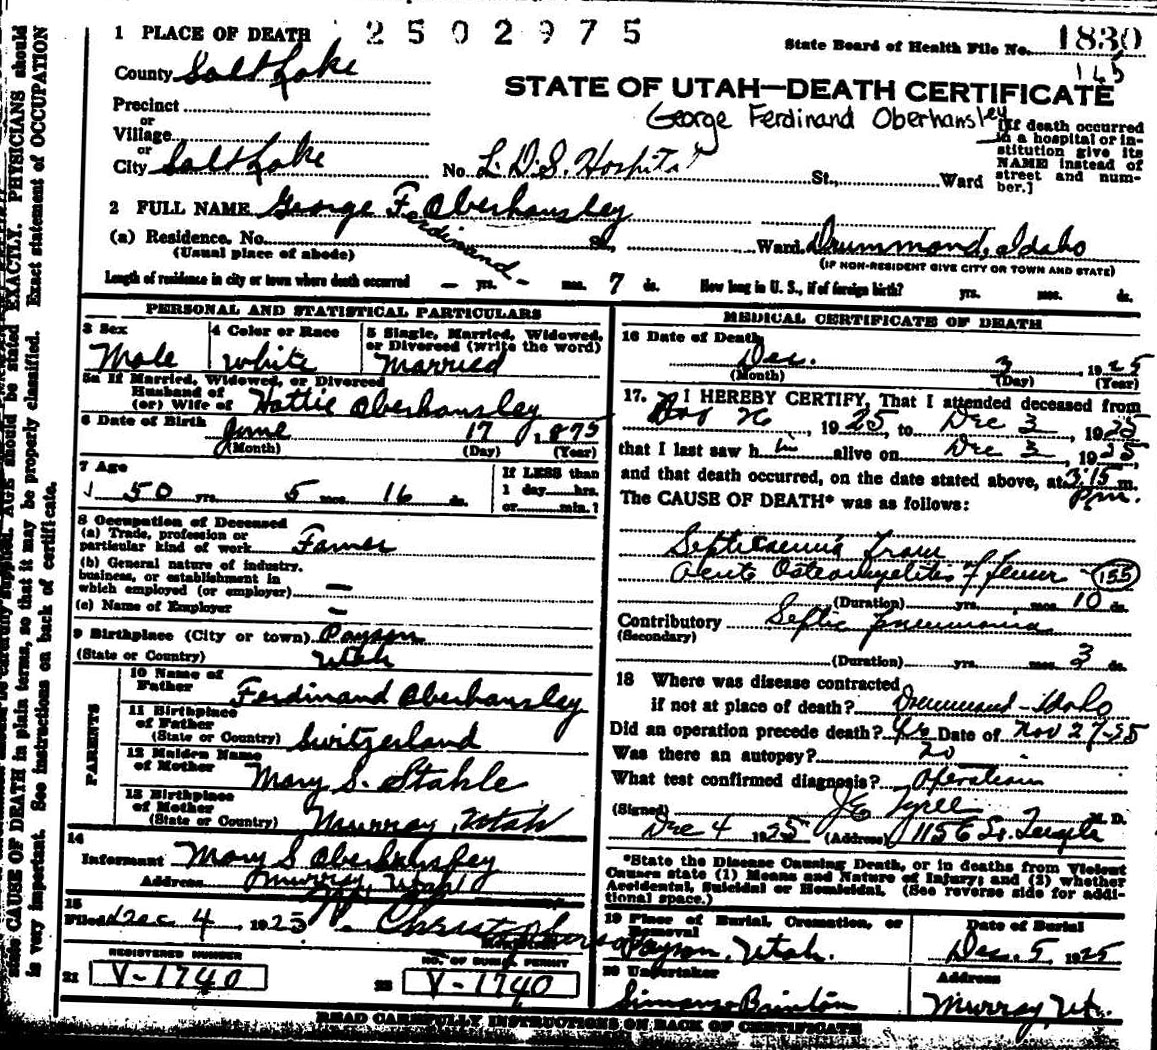 1 PLACE OF DEATH 2502975
State Board of Health File No. 1830
145
County Salt Lake
STATE OF UTAH—DEATH CERTIFICATE
George Ferdinand Oberhansley
Precinct
or
Village
or
City Salt Lake No. L.D.S. Hospital St., Ward
[If death occurred
in a hospital or in-
stitution give its
NAME instead of
street and num-
ber.]
2 FULL NAME George F. Oberhansley
Ferdinand
(a) Residence. No. St. Ward. Drummond, Idaho
(Usual place of abode) (IF NON-RESIDENT GIVE CITY OR TOWN AND STATE)
Length of residence in city or town where death occurred – yrs. – mos. 7 ds. How long in U. S., if of foreign birth? yrs. mos. ds.
PERSONAL AND STATISTICAL PARTICULARS
3 Sex
Male
4 Color or Race
White
5 Single, Married, Widowed,
or Divorced (write the word)
Married
5a If Married, Widowed, or Divorced
Husband of
(or) Wife of Hattie Oberhansley
6 Date of Birth June 17 1875
(Month) (Day) (Year)
7 Age
50 yrs. 5 mos. 16 ds.
If LESS than
1 day hrs.
or min.?
8 Occupation of Deceased
(a) Trade, profession or
particular kind of work Farmer
(b) General nature of industry,
business, or establishment in
which employed (or employer) –
(c) Name of Employer –
9 Birthplace (City or town) Payson
(State or Country) Utah
PARENTS
10 Name of
Father Ferdinand Oberhansley
11 Birthplace
of Father
(State or Country) Switzerland
12 Maiden Name
of Mother Mary S. Stahle
13 Birthplace
of Mother
(State or Country) Murray, Utah
14
Informant Mary S Oberhansley
Address Murray, Utah
15
Filed Dec. 4 1925 Christopherson
REGISTERED NUMBER
21 V-1740
NO. OF BURIAL PERMIT
22 V-1740
MEDICAL CERTIFICATE OF DEATH
16 Date of Death
Dec. 3, 1925
(Month) (Day) (Year)
17. I HEREBY CERTIFY, That I attended deceased from
Nov 26, 1925, to Dec 3, 1925
that I last saw him alive on Dec 3, 1925,
and that death occurred, on the date stated above, at 3:15 m.
P.m.
The CAUSE OF DEATH* was as follows:
Septicaemia from
Acute Osteomyelites of femur (155)
(Duration) yrs. mos. 10 ds.
Contributory Septic pneumonia
(Secondary)
(Duration) yrs. mos. 3 ds.
18 Where was disease contracted
if not at place of death? Drummond-Idaho
Did an operation precede death? Yes Date of Nov 27-25
Was there an autopsy? no
What test confirmed diagnosis? Operation
(Signed) J E Tyree M. D.
Dec 4 1925 (Address) 115 E So. Temple
*State the Disease Causing Death, or in deaths from Violent
Causes state (1) Means and Nature of Injury; and (2) whether
Accidental, Suicidal or Homicidal. (See reverse side for addi-
tional space.)
19 Place of Burial, Cremation, or
Removal
Payson, Utah.
Date of Burial
Dec. 5, 1925
20 Undertaker
Address
Murray, Ut.
READ CAREFULLY INSTRUCTIONS ON BACK OF CERTIFICATE
AGE should be stated EXACTLY. PHYSICIANS should
state CAUSE OF DEATH in plain terms, so that it may be properly classified. Exact statement of OCCUPATION
is very important. See instructions on back of certificate.